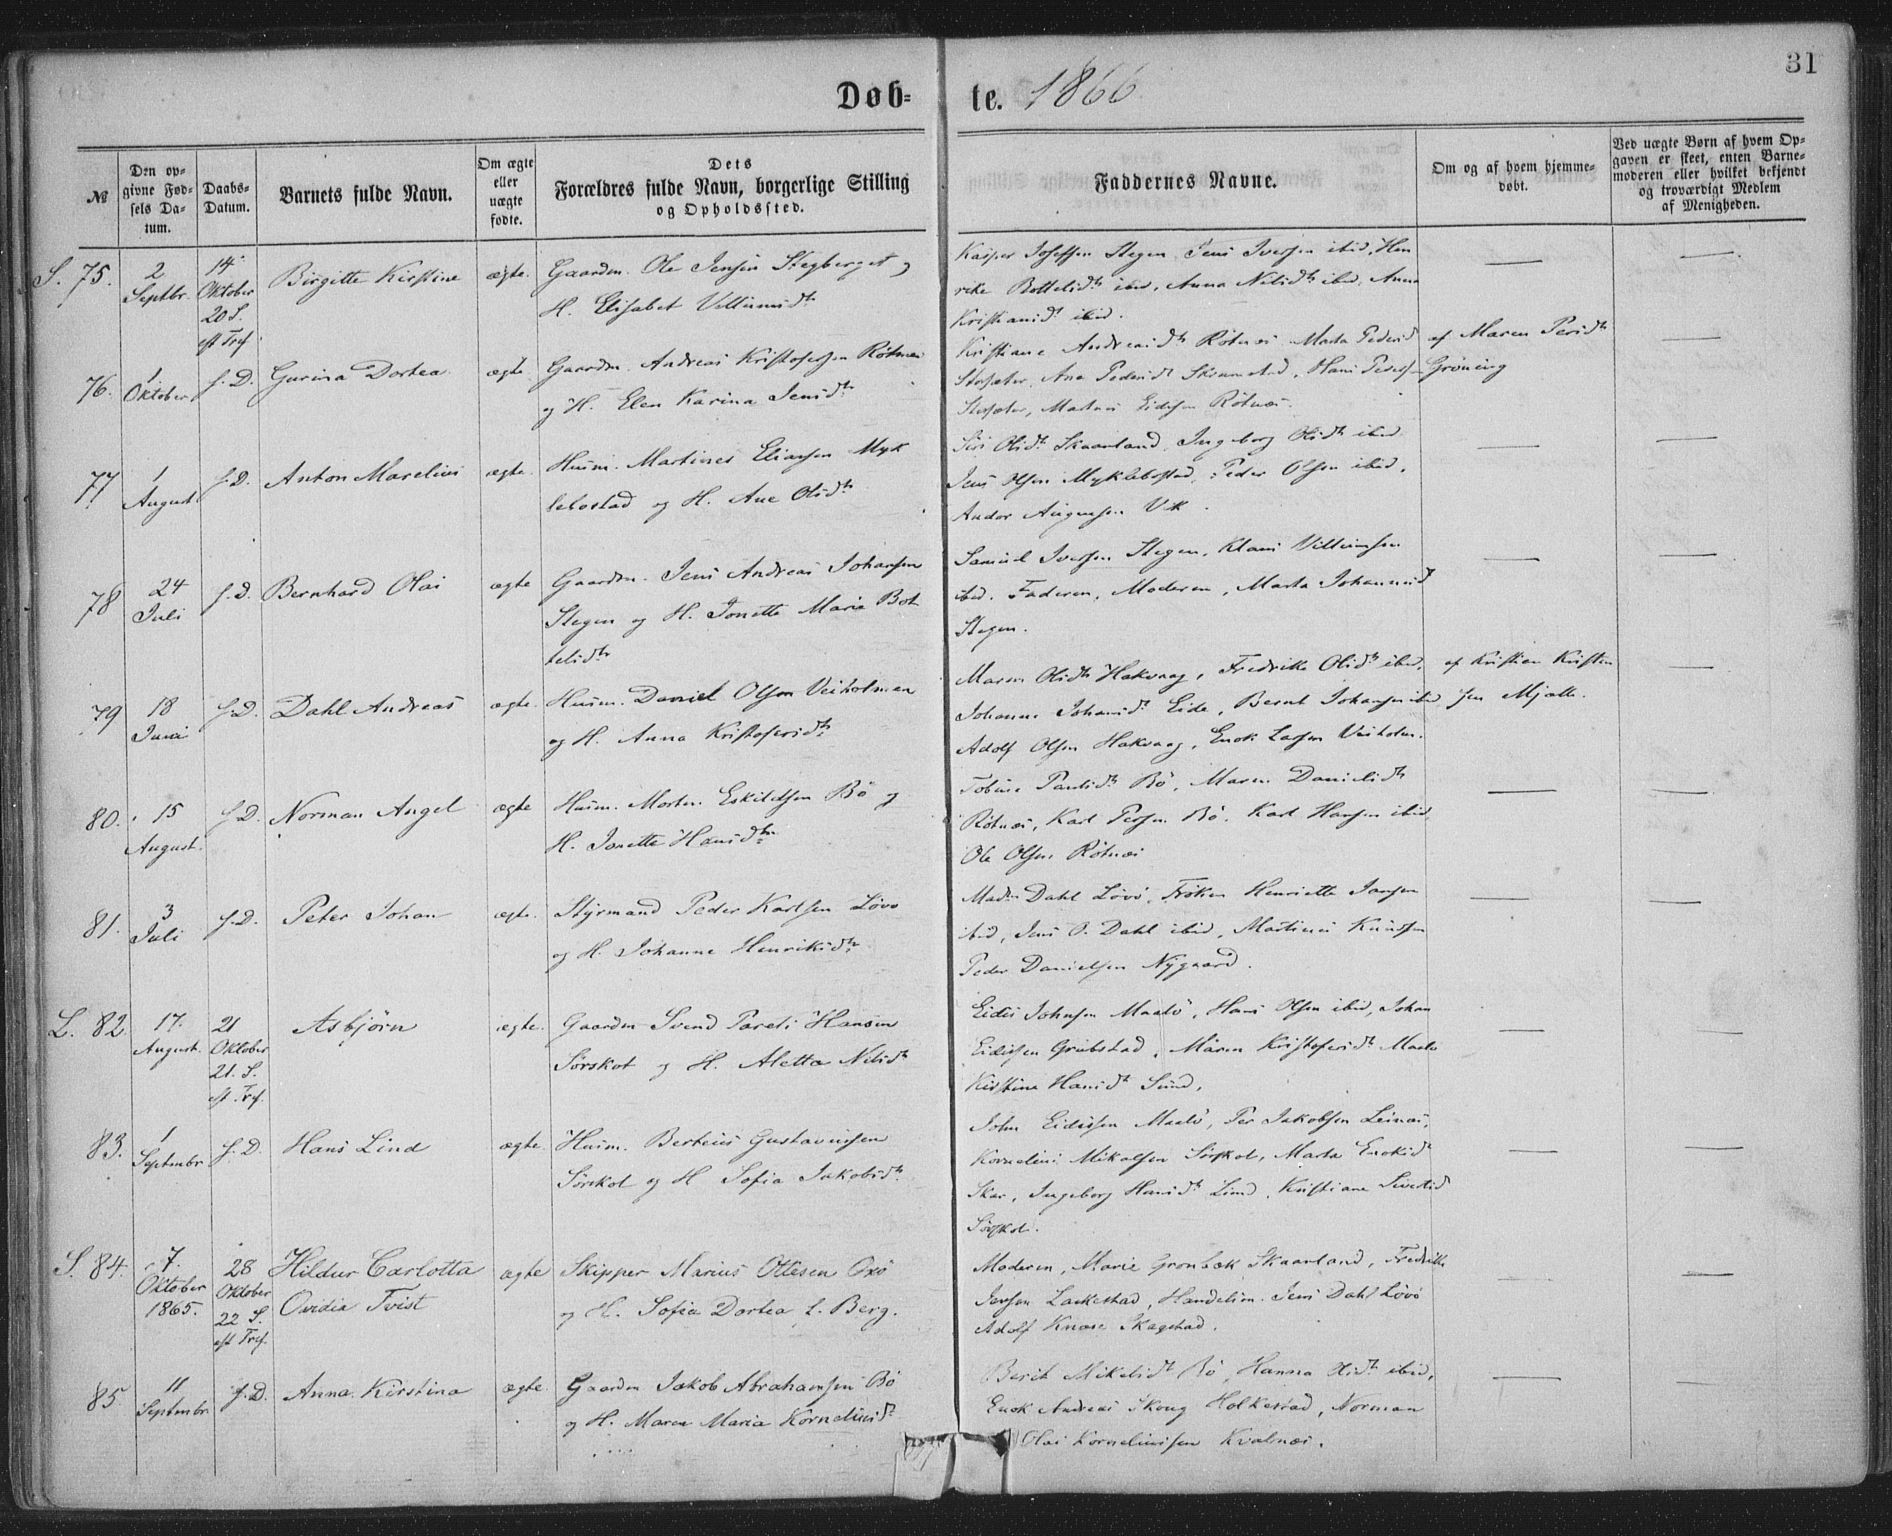 31
Døb= te. 1866
№
Den op=
givne Fød=
sels Da=
tum.
Daabs=
Datum.
Barnets fulde Navn.
Om ægte
eller
uægte
fødte.
Dets
Forældres fulde Navn, borgerlige Stilling
og Opholdssted.
Faddernes Navne.
Om og af hvem hjemme=
døbt.
Ved uægte Børn af hvem Op=
gaven er skeet, enten Barne=
moderen eller hvilket bekjendt
og troværdigt Medlem
af Menigheden.
S. 75.
2
Septbr.
14
Oktober
20 S.
eft Tref.
Birgitte Kirstine
ægte.
Gaardm. Ole Jensen Stegberget og
H. Elisabet Villumsdtr
Kasper Josefsen Stegen, Jens Iversen ibid, Hen
rike Bottelsdtr ibid, Anna Nilsdtr ibid, Anna
Kristiansdt ibid.
76.
1
Oktober
s. D.
Gurina Dortea
ægte.
Gaardm. Andreas Kristofersen Røtnæs
og H. Elen Karina Jensdtr
Kristiane Andreasdtr Rötnæs Marta Pedersd
Ane Pedersdt Hans Peders
Martinus Eidissen Rötnæs.
af Maren Persdtr
Gröning
77
1
August
s. D.
Anton Marelius
ægte.
Husm. Martines Eliassen Myk
lebostad og H. Ane Olsdtr
Siri Olsdtr Skaanland, Ingeborg Olsdtr ibid.
Jens Olsen Myklebostad, Peder Olsen ibid.
Andor Vik.
78
24
Juli
s. D.
Bernhard Olai
ægte
Gaardm. Jens Andreas Johansen
Stegen og H. Jonette Maria Bot
telsdtr
Samuel Iversen Stegen, Klaus Villumsen
ibid. Faderen, Moderen, Marta Johannesd
Stegen.
79
18
Juni
s. D.
Dahl Andreas
ægte.
Husm. Daniel Olsen Veiholmen
og H. Anna Kristofersdtr
Maren Olsdtr Hakvaag, Fredrike Olsdtr ibid.
Johanne Johansdt Eide, Bernt Johansen ibid
Adolf Olsen Hakvaag, Enok Larsen Veiholm.
af Kristian Kristen
sen Mjatle.
80.
15
August.
s. D.
Norman Angel
ægte
Husm. Morten Eskildsen Bö og
H. Jonette Hansdtr
Tobine Paulsdtr Bö, Maren Danielsdtr
Rötnæs, Karl Persen Bö, Karl Hansen ibid
Ole Olsen Rötnæs
81.
3
Juli
s. D.
Peter Johan
ægte.
Styrmand Peder Karlsen Lövö
og H. Johanne Henriksdtr
Madm Dahl Lövö, Fröken Henriette Jansen
ibid, Jens O. Dahl ibid, Martinus Knudsen
Peder Danielsen Nygaard.
L. 82
17.
August.
21
Oktober
21. S.
eft. Tref.
Asbjørn
ægte.
Gaardm Svend Pareli Hansen
Sörskot og H. Aletta Nilsdtr
Eidis Johnsen Maalö, Hans Olsen ibid, Johan
Eidissen Grubstad, Maren Kristofersdtr Maalö
Kirstine Hansdtr Sund,
83.
1
Septmbr
s. D.
Hans Lind
ægte
Husm. Berteus Gustavussen
Sörskot og H Sofia Jakobsdtr
John Eidissen Maalö, Per Jakobsen Leinæs,
Kornelius Mikalsen Sörskot, Marta Enoksdt
Skar, Ingeborg Hansdtr Lund, Kristiane Sivertsd
Sörskot.
S. 84.
7.
Oktober
1865.
28
Oktober
22 S.
eft Tref.
Hildur Carlotta
Ovidia Tvist
ægte
Skipper Marius Ottesen Oxö
og H. Sofia Dortea f. Berg.
Moderen, Marie Grønbæk Skaanland, Fredrikke
Jensen Laskestad, Handelsm. Jens Dahl Lövö
Adolf Knæse Skagstad.
85.
11
Septmbr.
s. D.
Anna Kirstina
ægte.
Gaardm Jakob Abrahamsen Bö
og H. Maren Maria Korneliusdtr
Berit Mikelsdt Bö, Hanna Olsdtr ibid,
Enok Andreas Skoug Holkestad, Norman
Olai Korneliussen Kvalnæs.